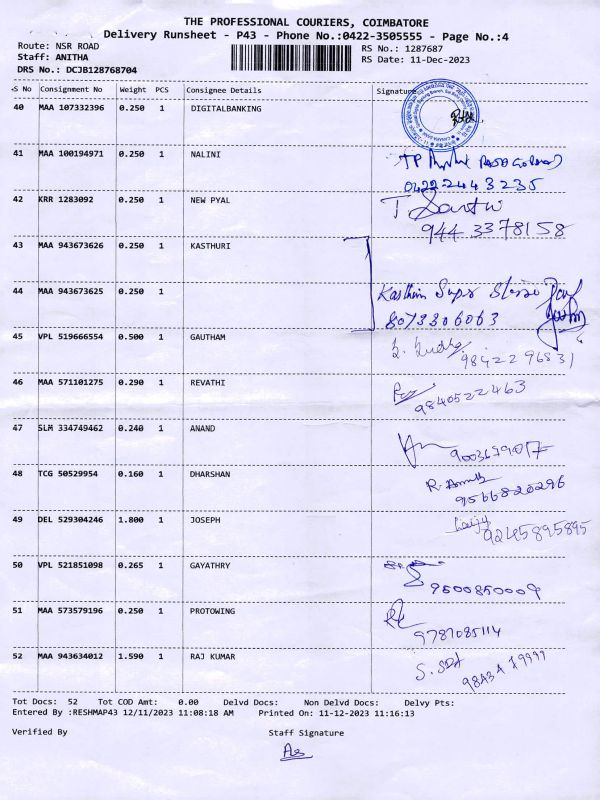 THE PROFESSIONAL COURIERS, COIMBATORE
Delivery Runsheet - P43 - Phone No.:0422-3505555 - Page No.:4
Route: NSR ROAD RS No.: 1287687
Staff: ANITHA RS Date: 11-Dec-2023
DRS No.: DCJB128768704
S No Consignment No Weight PCS Consignee Details Signature
40 MAA 107332396 0.250 1 DIGITALBANKING
41 MAA 100194971 0.250 1 NALINI
0422 2443235
42 KRR 1283092 0.250 1 NEW PYAL T Santhi
944 3378158
43 MAA 943673626 0.250 1 KASTHURI
44 MAA 943673625 0.250 1 Kasthuri Super Stores
8073306063
45 VPL 519666554 0.500 1 GAUTHAM
98422 96831
46 MAA 571101275 0.290 1 REVATHI
9840522463
47 SLM 334749462 0.240 1 ANAND
9003679017
48 TCG 50529954 0.160 1 DHARSHAN
9566820296
49 DEL 529304246 1.800 1 JOSEPH
9245895895
50 VPL 521851098 0.265 1 GAYATHRY
9500850009
51 MAA 573579196 0.250 1 PROTOWING
9787085114
52 MAA 943634012 1.590 1 RAJ KUMAR
Tot Docs: 52 Tot COD Amt: 0.00 Delvd Docs: Non Delvd Docs: Delvy Pts:
Entered By :RESHMAP43 12/11/2023 11:08:18 AM Printed On: 11-12-2023 11:16:13
Verified By Staff Signature